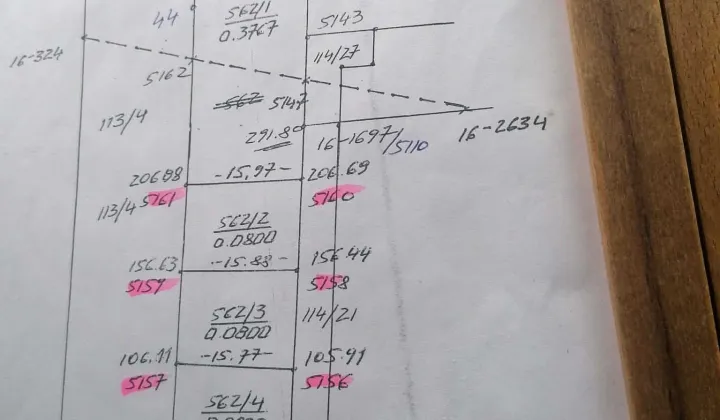 44
562/1
0.3767
5143
16-324
114/27
5162
562 5147
113/4
291.80
16-1697/5110
16-2634
206.88
-15.97-
206.69
5161
5160
113/4
562/2
0.0800
156.63
-15.88-
156.44
5159
5158
562/3
0.0800
114/21
106.11
-15.77-
105.91
5157
5156
562/4